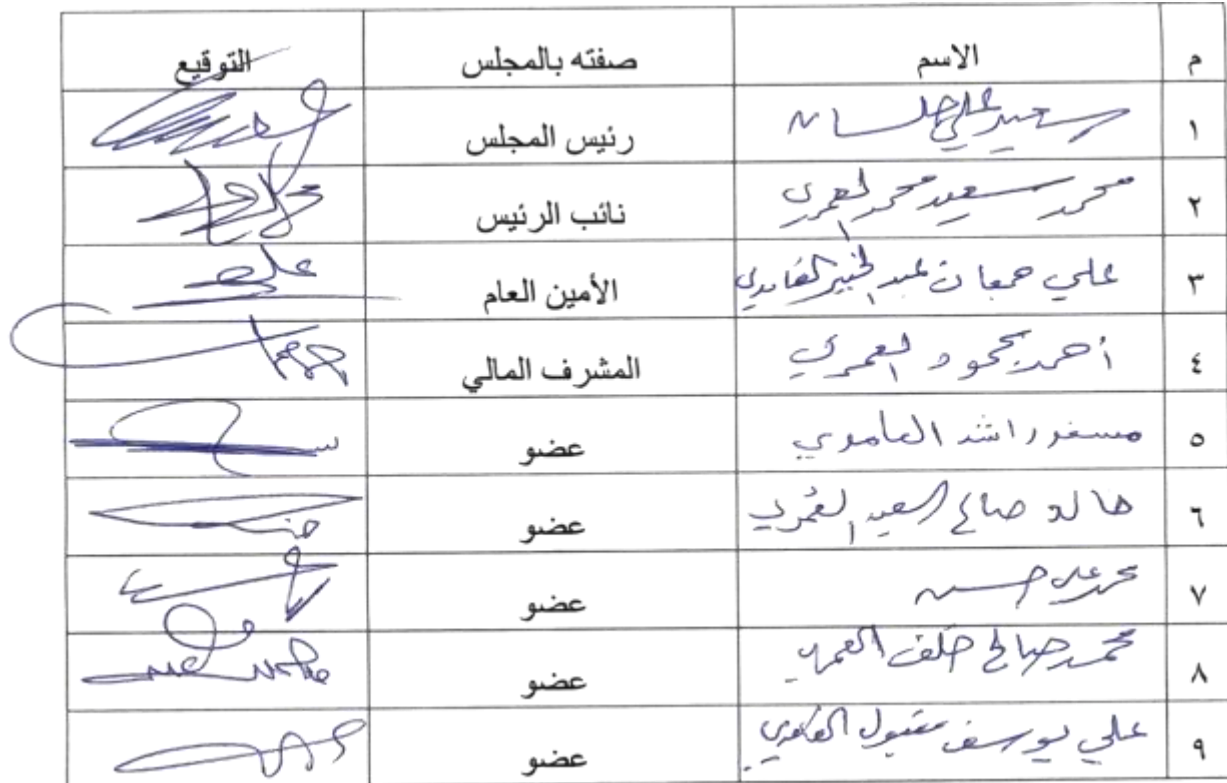 م الاسم صفته بالمجلس التوقيع
١ سعيد علي رئيس المجلس
٢ محمد سعيد محمد العمري نائب الرئيس
٣ علي جمعان عبد الخير الغامدي الأمين العام علي
٤ أحمد محمود العمري المشرف المالي
٥ مسفر راشد الغامدي عضو
٦ خالد صالح السعيد العمري عضو
٧ محمد علي حسين عضو
٨ محمد صالح خلف العمري عضو
٩ علي يوسف مقبول الغامدي عضو